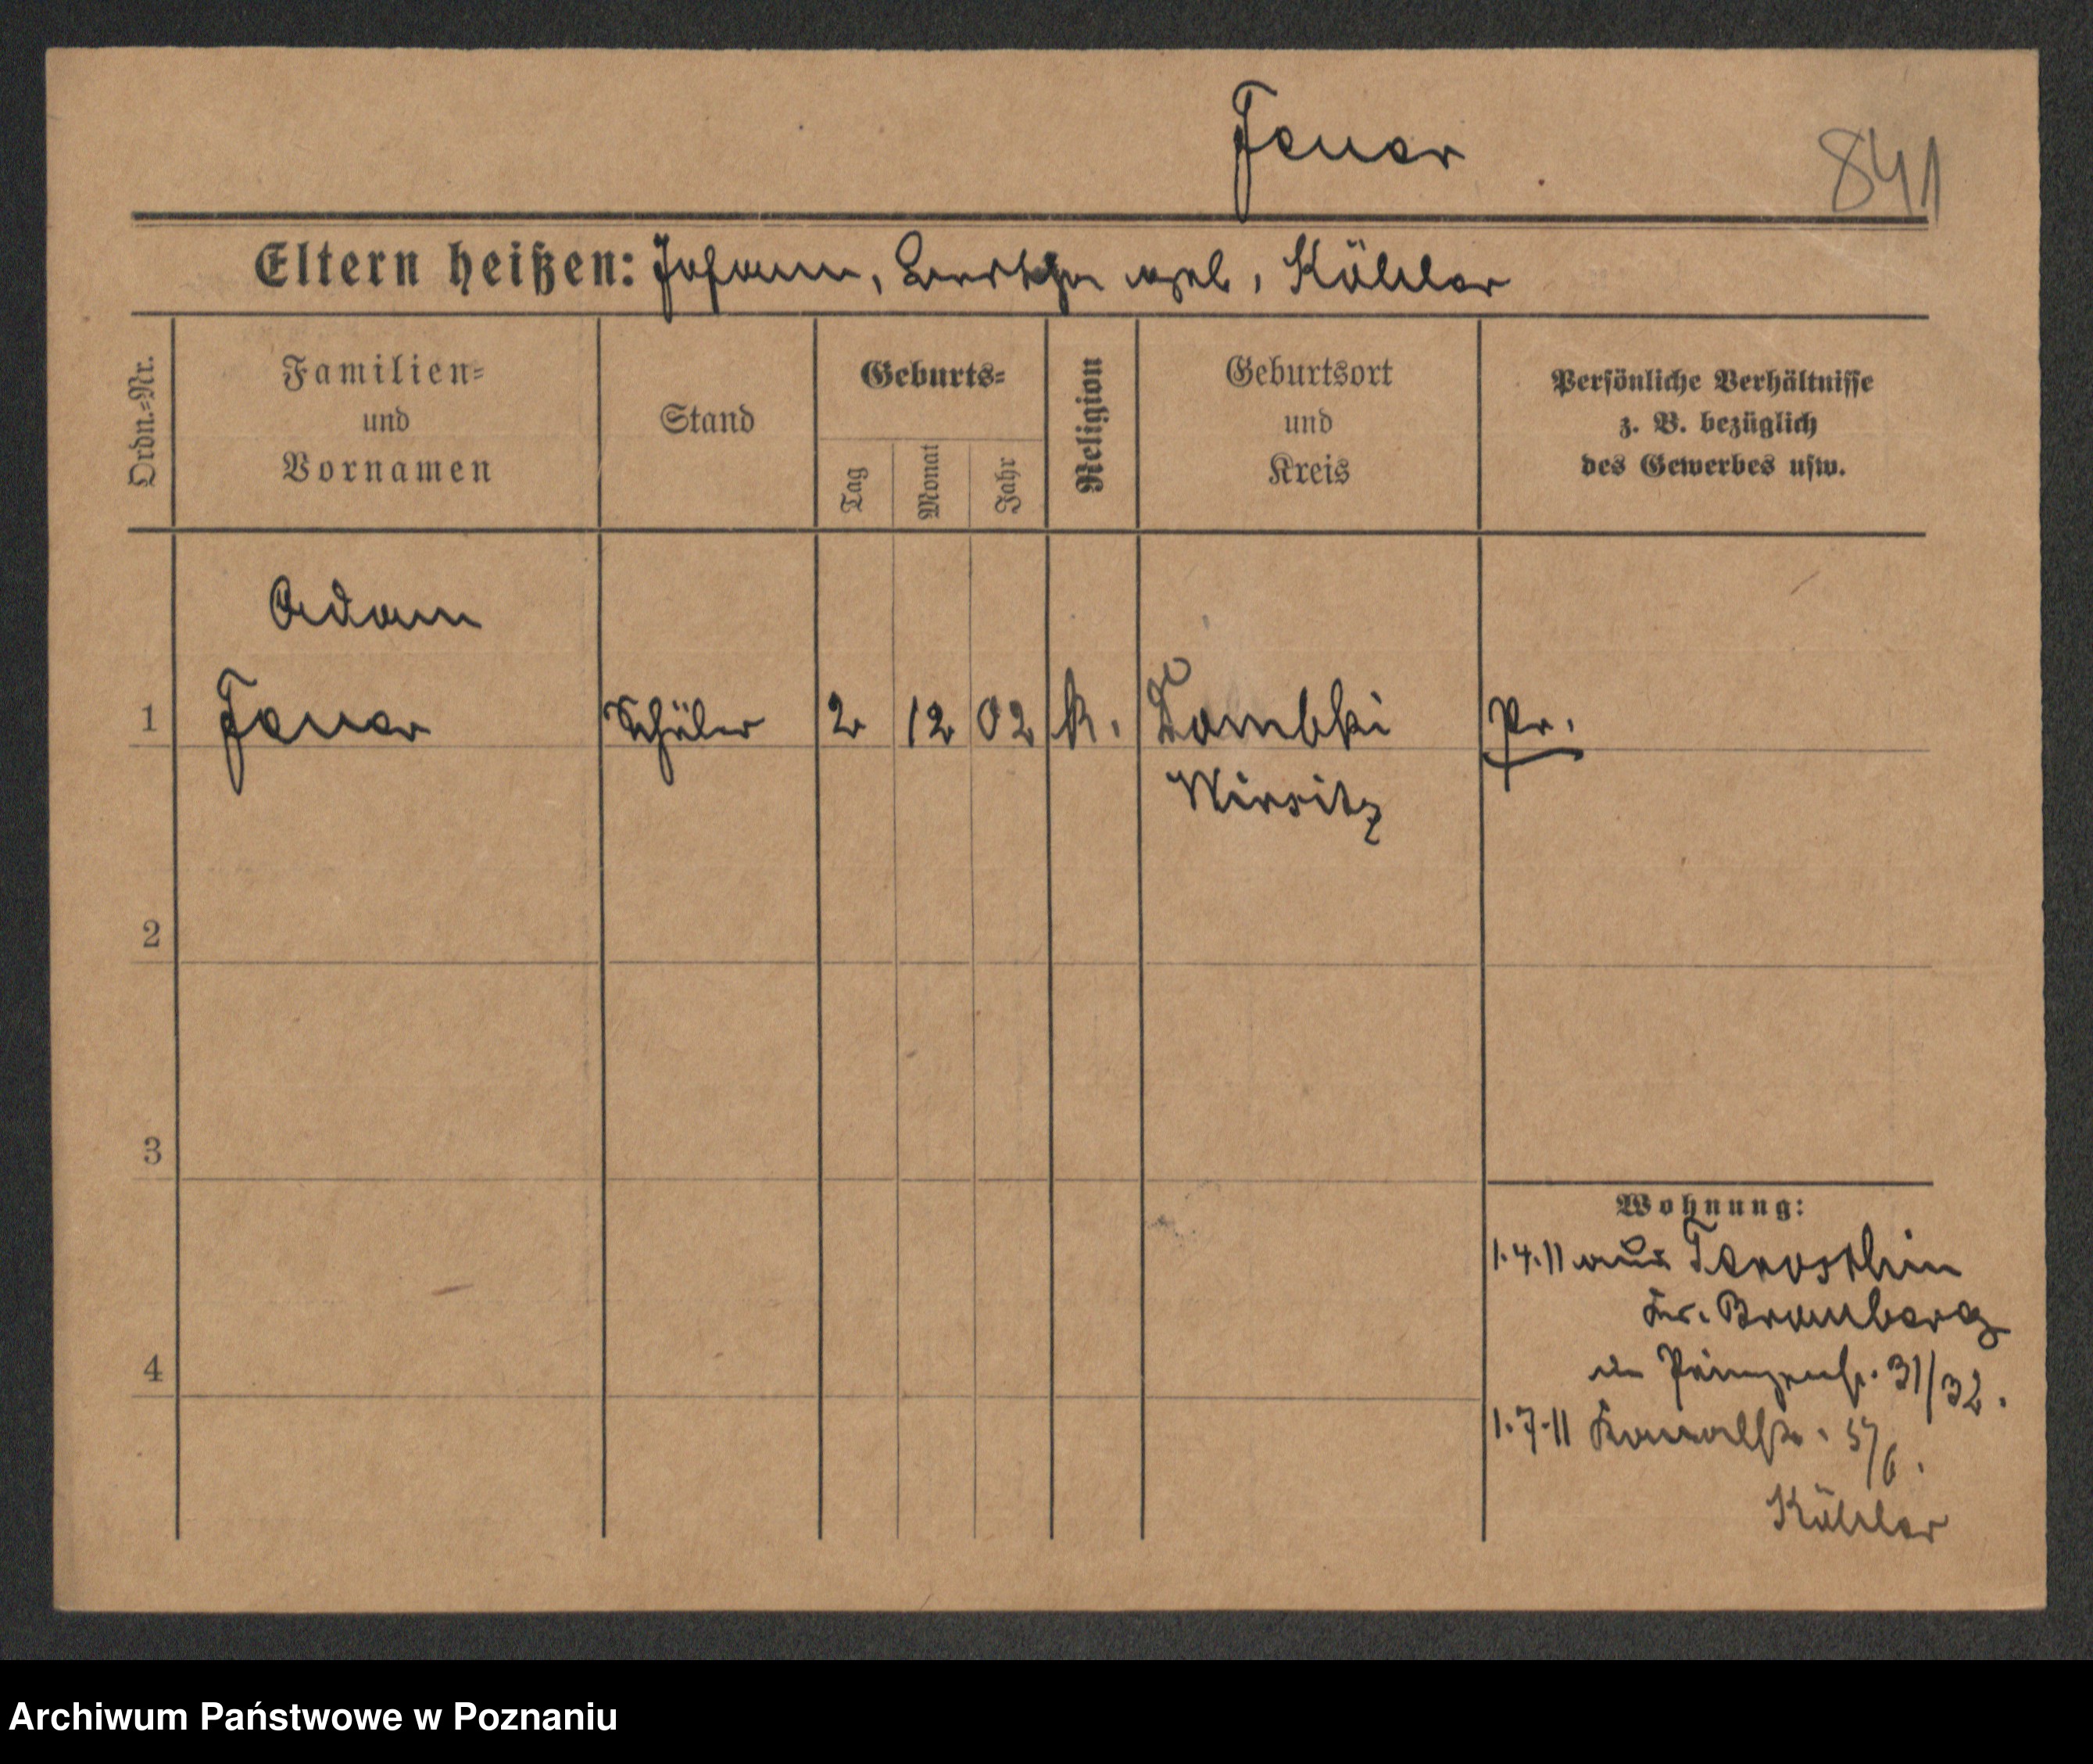 Feuer
841
Eltern heißen: Johann, Bertha geb. Köhler
Ordn.-Nr.
Familien-
und
Vornamen
Stand
Geburts-
Tag
Monat
Jahr
Religion
Geburtsort
und
Kreis
Persönliche Verhältnisse
z. B. bezüglich
des Gewerbes usw.
Adam
1 Feuer Schüler 2 12 02 k. Dombki Pr.
Wirsitz
2
3
4
Wohnung:
1.4.11 aus
Kr. Bromberg
in Prinzenstr. 31/32.
1.7.11 Kanalstr.
Köhler
Archiwum Państwowe w Poznaniu